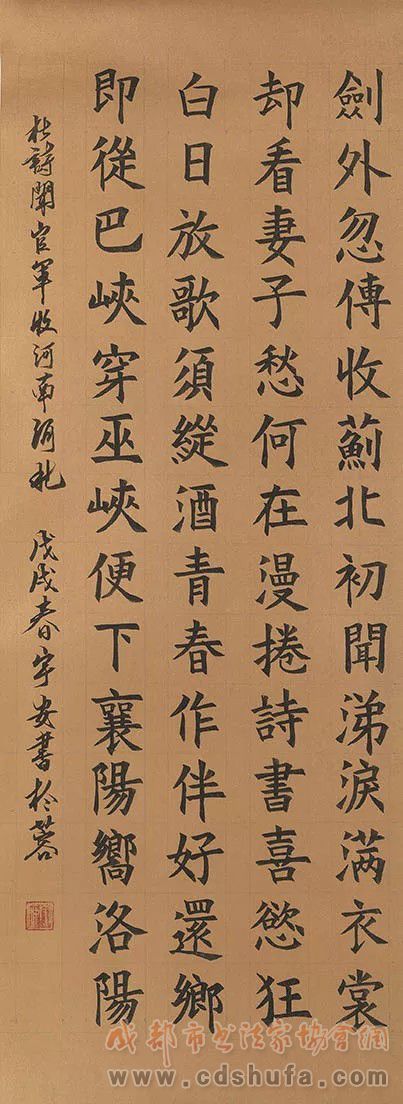 劍外忽傳收薊北初聞涕淚满衣裳
却看妻子愁何在漫捲詩書喜慾狂
白日放歌須縱酒青春作伴好還鄉
即從巴峽穿巫峽便下襄陽嚮洛陽
杜詩聞官軍收河南河北 戊戌春宇安書於蓉
成都市书法家協會網
www.cdshufa.com